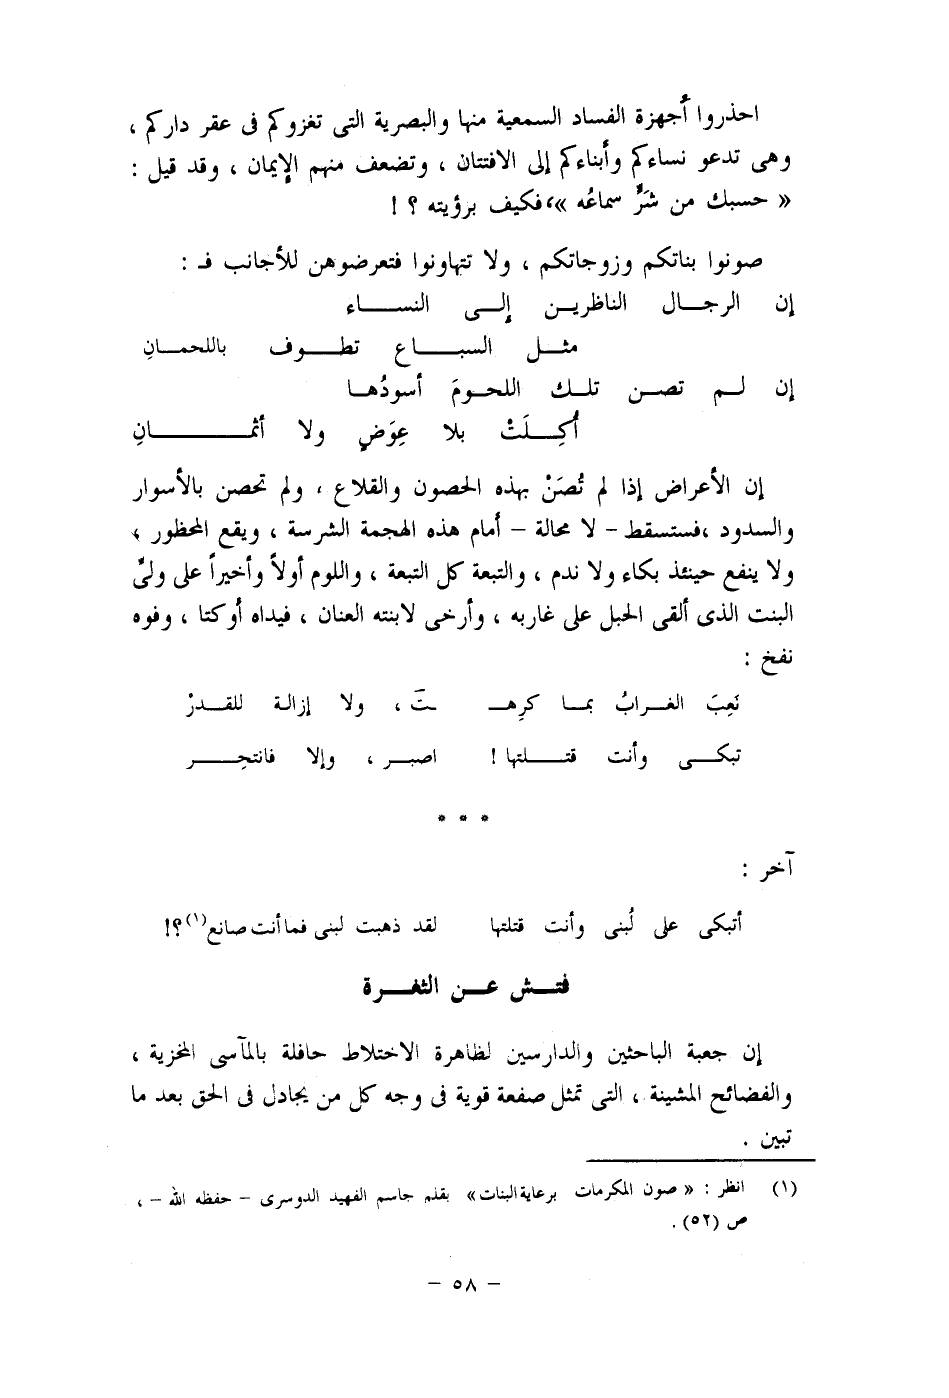 احذروا أجهزة الفساد السمعية منها والبصرية التى تغزوكم فى عقر داركم ،
وهى تدعو نساءكم وأبناءكم إلى الافتتان ، وتضعف منهم الإيمان ، وقد قيل :
« حسبك من شَرٍّ سماعُه »، فكيف برؤيته ؟ !
صونوا بناتكم وزوجاتكم ، ولا تتهاونوا فتعرضوهن للأجانب فـ :
إن الرجـــال الناظريـــن إلـــى النســـاء
مثـــل السبـــاع تطـــوف باللحمانِ
إن لـــم تصـــن تلـــك اللحـــومَ أسودُهـــا
أُكِـــلَتْ بلا عِوَضٍ ولا أثمـــانِ
إن الأعراض إذا لم تُصَنْ بهذه الحصون والقلاع ، ولم تحصن بالأسوار
والسدود ،فستسقط - لا محالة - أمام هذه الهجمة الشرسة ، ويقع المحظور ،
ولا ينفع حينئذ بكاء ولا ندم ، والتبعة كل التبعة ، واللوم أولاً وأخيراً على ولىِّ
البنت الذى ألقى الحبل على غاربه ، وأرخى لابنته العنان ، فيداه أوكتا ، وفوه
نفخ :
نَعِبَ الغـــرابُ بمـــا كرِهـــ ـــتَ ، ولا إزالـة للقـــدرْ
تبكـــى وأنت قتـــلتها ! اصبـــر ، وإلا فانتحِـــر
* * *
آخر :
أتبكى على لُبنى وأنت قتلتها لقد ذهبت لبنى فما أنت صانع(١)؟!
فتـــش عـــن الثغـــرة
إن جعبة الباحثين والدارسين لظاهرة الاختلاط حافلة بالمآسى المخزية ،
والفضائح المشينة ، التى تمثل صفعة قوية فى وجه كل من يجادل فى الحق بعد ما
تبين .
(١) انظر : « صون المكرمات برعاية البنات» بقلم جاسم الفهيد الدوسرى - حفظه الله - ،
ص (٥٢) .
- ٥٨ -